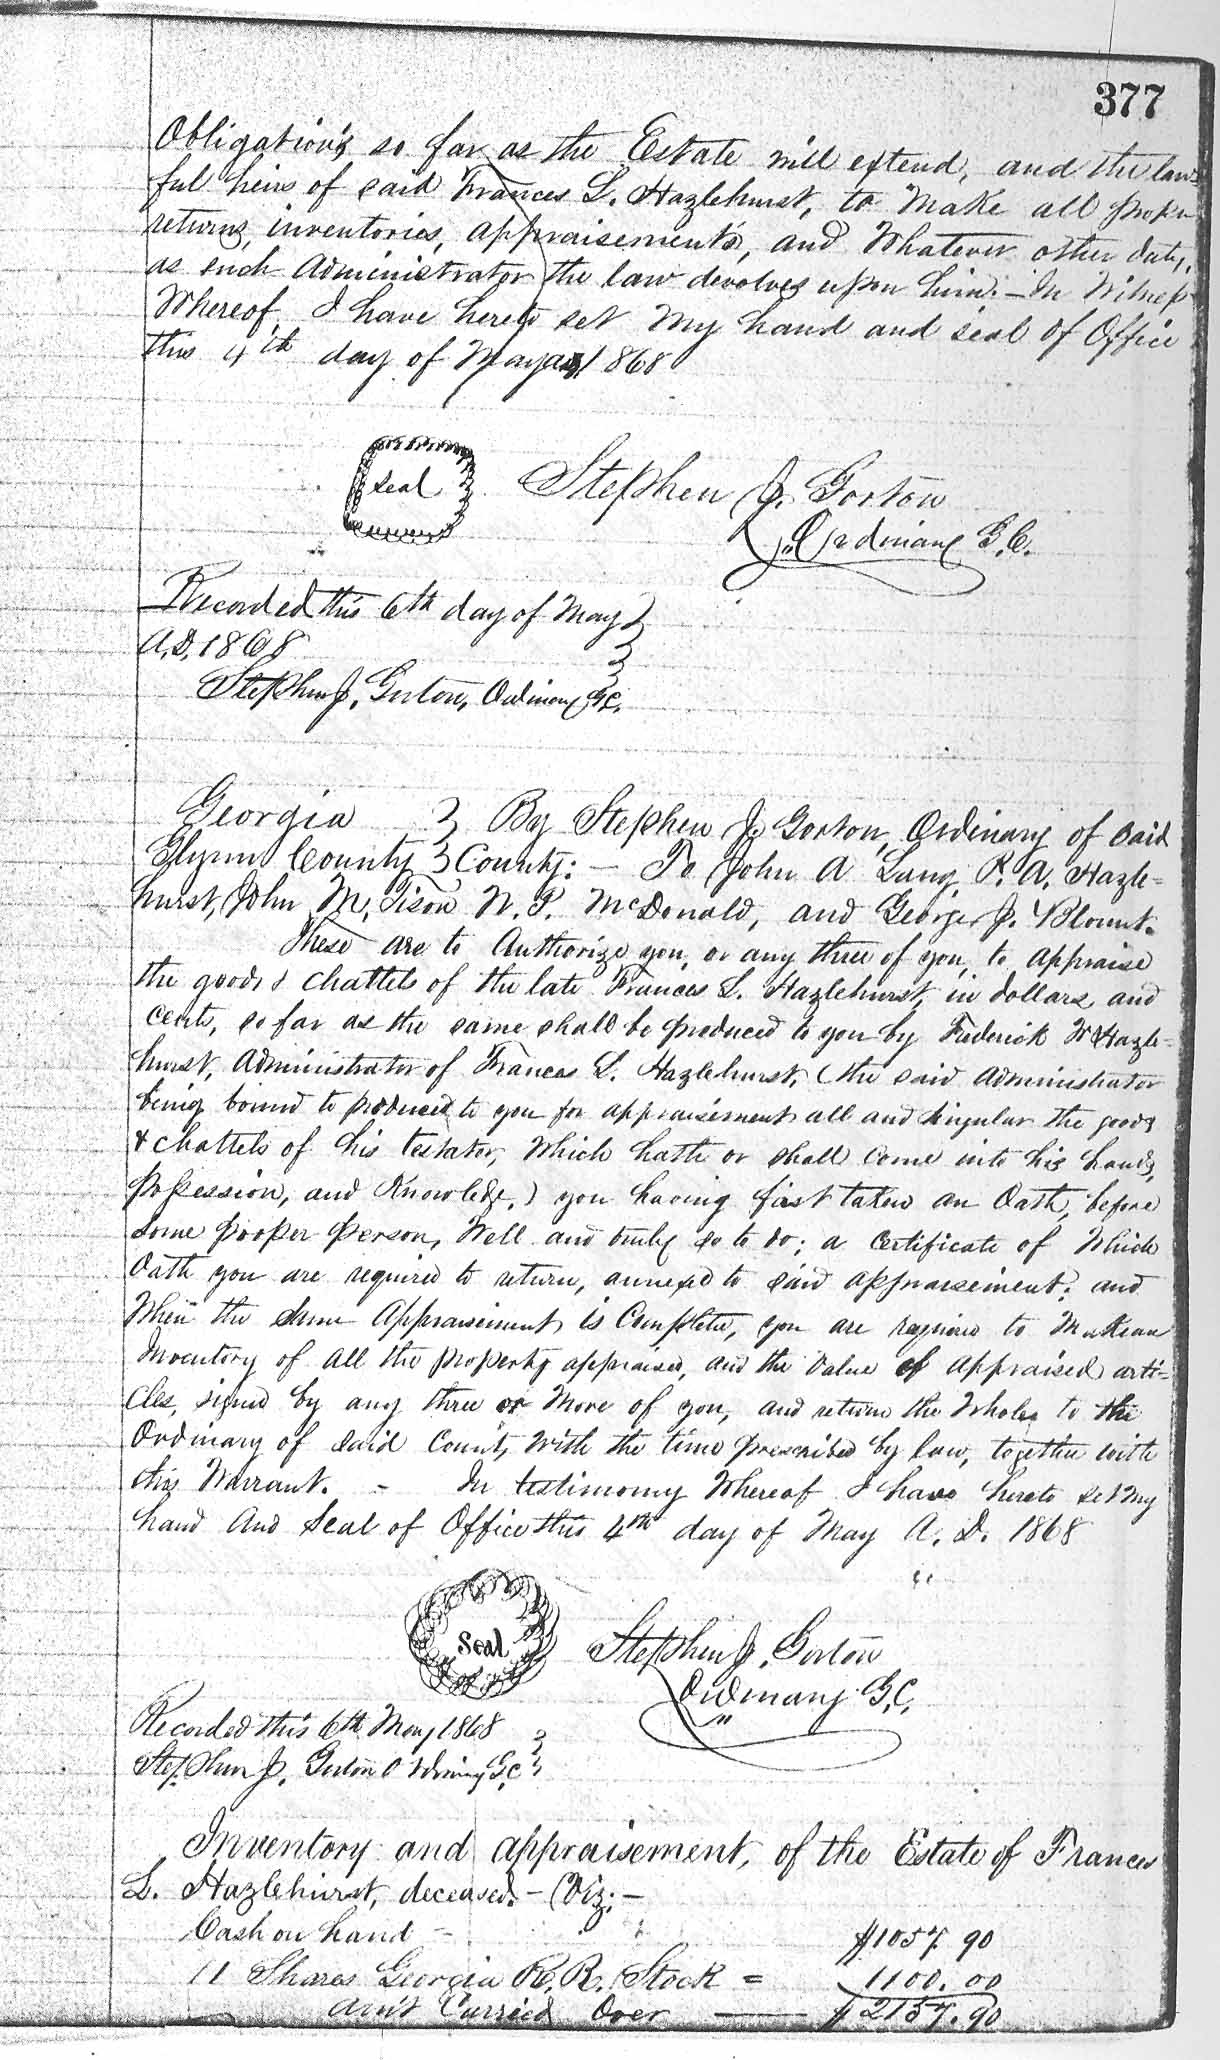 377
Obligations so far as the Estate will extend, and the law=
ful heirs of said Frances L. Hazlehurst, to Make all proper
returns, inventories, appraisements, and Whatever other duty,
as such Administrator the law devolves upon him. — In Witness
Whereof, I have hereto set My hand and seal of Office
this 4th day of May 1868
Seal
Stephen J. Gorton
Ordinary G.C.
Recorded this 6th day of May
A.D. 1868
Stephen J. Gorton, Ordinary G.C.
Georgia } By Stephen J. Gorton, Ordinary of said
Glynn County } County: — To John A Lang, R. A. Hazle=
hurst, John M. Tison W. P. McDonald, and George J. Blount.
These are to Authorize you, or any three of you, to appraise
the goods & chattels of the late Frances L. Hazlehurst, in dollars and
cents, so far as the same shall be produced to you by Frederick W Hazle=
hurst, Administrator of Frances L. Hazlehurst, (the said administrator
being bound to produced to you for appraisement all and singular the goods
& chattels of his testator, Which hath or shall come into his hands,
possession, and Knowledge,) you having first taken an Oath, before
some proper person, Well and truly so to do; a certificate of Which
Oath you are required to return, annexed to said appraisement; and
When the same Appraisement is Complete, you are required to Make an
Inventory of all the property appraised, and the value of appraised arti=
cles, signed by any three or More of you, and return the Whole to the
Ordinary of said County With the time prescribed by law, together with
this Warrant. - In testimony Whereof I have hereto set My
hand And Seal of Office this 4th day of May A. D. 1868
Seal
Stephen J. Gorton
Ordinary G.C.
Recorded this 6th May 1868
Stephen J. Gorton Ordinary G.C
Inventory and appraisement, of the Estate of Frances
L. Hazlehurst, deceased. — Viz: —
Cash on hand - $1057.90
11 Shares Georgia R.R. Stock = 1100.00
Am't Carried Over — $2157.90